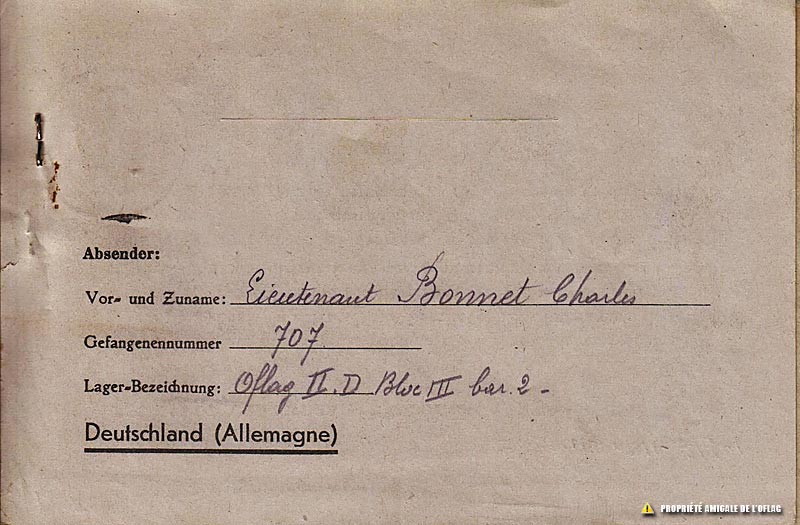 Absender:
Vor- und Zuname: Lieutenant Bonnet Charles
Gefangenennummer 707
Lager-Bezeichnung: Oflag II.D Bloc III bar. 2 -
Deutschland (Allemagne)
PROPRIÉTÉ AMICALE DE L'OFLAG